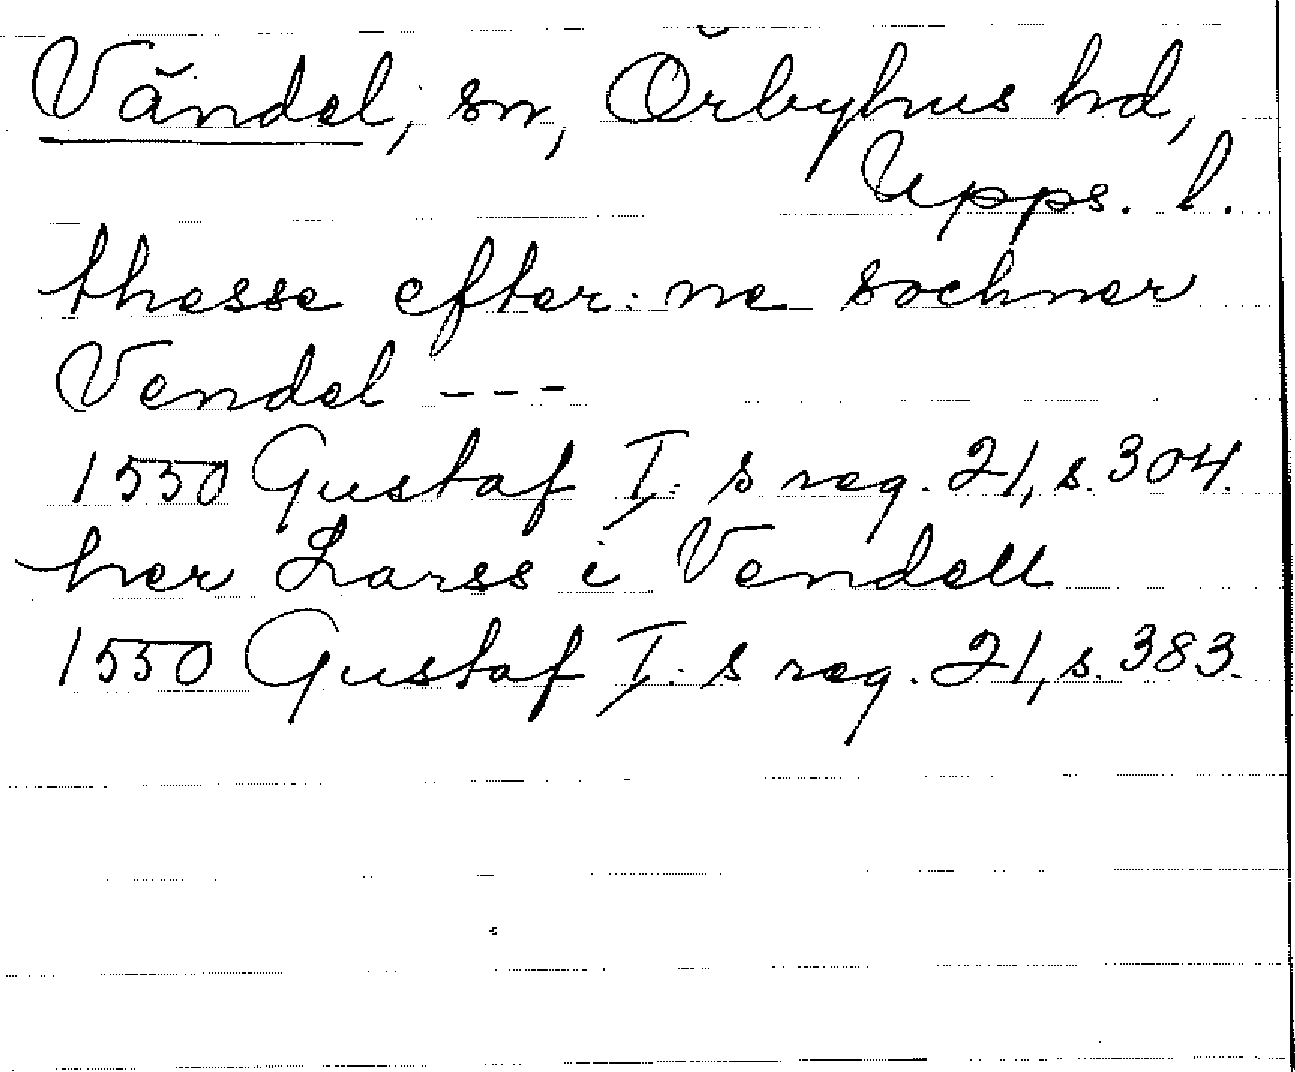 Vändel, sn, Örbyhus hd,
Upps. l.
thesse efter: ne sockner
Vendel ---
1550 Gustaf I: s reg. 21, s. 304.
her Larss i Vendell
1550 Gustaf I: s reg. 21, s. 383.